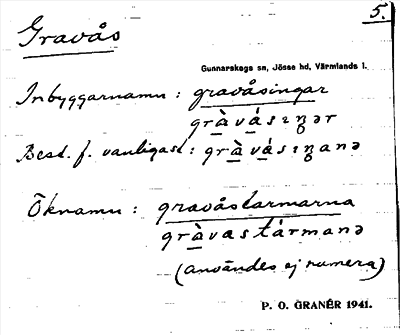 5.
Gravås
Gunnarskogs sn, Jösse hd, Värmlands l.
Inbyggarnamn: gravåsingar
gràvásıŋər
Best. f. vanligast: gràvásıŋanə
Öknamn: gravåstarmarna
gràvastármanə
(användes ej numera)
P. O. GRANÉR 1941.